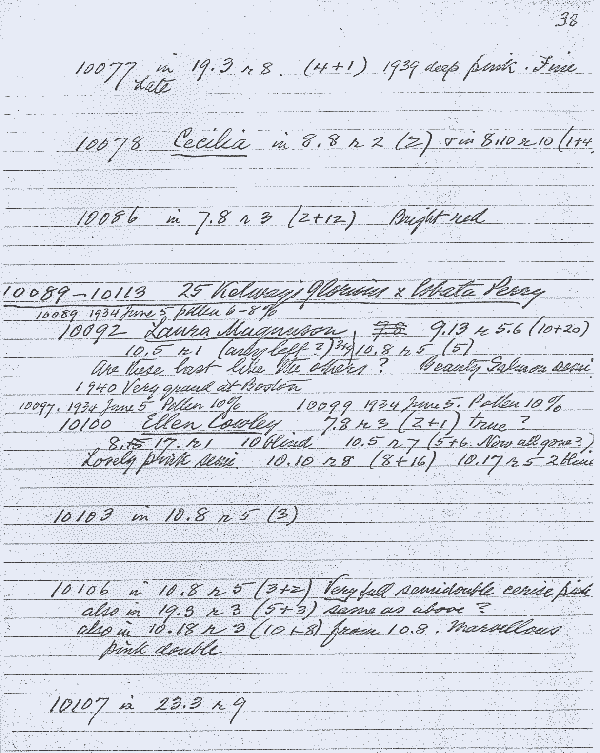 38
10077 in 19.3 r 8. (4+1) 1939 deep pink. Fine
Late
10078 Cecilia in 8.8 r 2 (2) & in 8.10 r 10 (1+4
10086 in 7.8 r 3 (2+12) Bright red
10089-10113 25 Kelways Glorious x lobata Perry
10089 1934 June 5 pollen 6-8%
10092 Laura Magnuson 9.13 r 5.6 (10+20)
10.5 r 1 (only left 2) 10.8 r 5 (5)
Are these last like the others? Beauty Salmon semi
1940 Very grand at Boston
10097. 1934 June 5 Pollen 10% 10099 1934 June 5. Pollen 10%
10100 Ellen Cowley 7.8 r 3 (2+1) true?
8.17. r 1 10 blind 10.5 r 7 (5+6. Now all gone?)
Lovely pink semi 10.10 r 8 (8+16) 10.17 r 5 - 2 blind
10103 in 10.8 r 5 (3)
10106 in 10.8 r 5 (3+2) Very full semidouble cerise pink
also in 19.3 r 3 (5+3) same as above?
also in 10.18 r 3 (10+8) from 10.8. Marvellous
pink double
10107 in 23.3 r 9